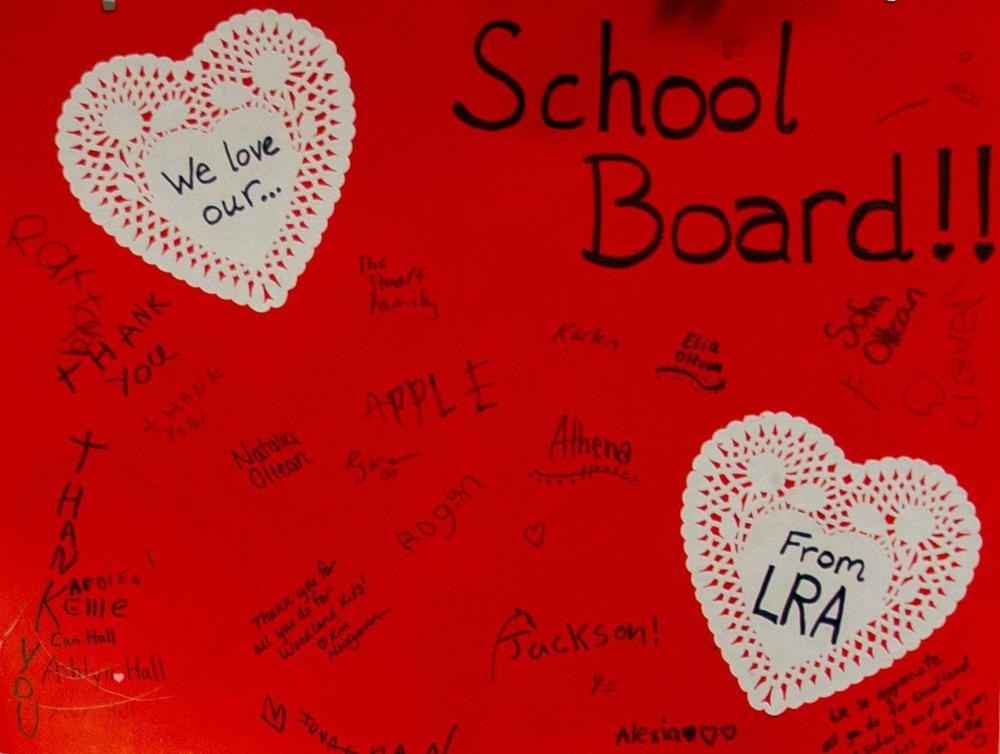 We love
our...
School
Board!!
The
Stuart
family
THANK
You
THANK
You
Karlen
Elia
Oltean
Sofia
Oltean
APPLE
Natalia
Oltean
Athena
Rogan
THANK
YOU
Kellie
Cam Hall
Ashlyn Hall
Thank you for
all you do for
Woodland Kids!
Kim
Jackson!
From
LRA
JONATHAN
Alexia
We so appreciate
all you do for Woodland
students and our